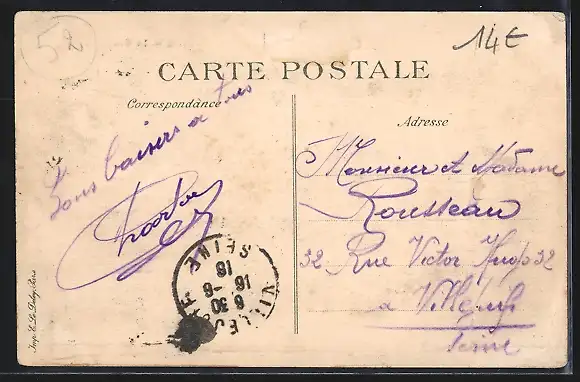 52
14€
CARTE POSTALE
Correspondance
Adresse
Bons baisers a tous
Monsieur et Madame
Rousseau
32 Rue Victor Hugo 32
a Villejuif
Seine
VILLEJUIF
SEINE
6 30
16 - 6
16
Imp. E. Le Deley, Paris